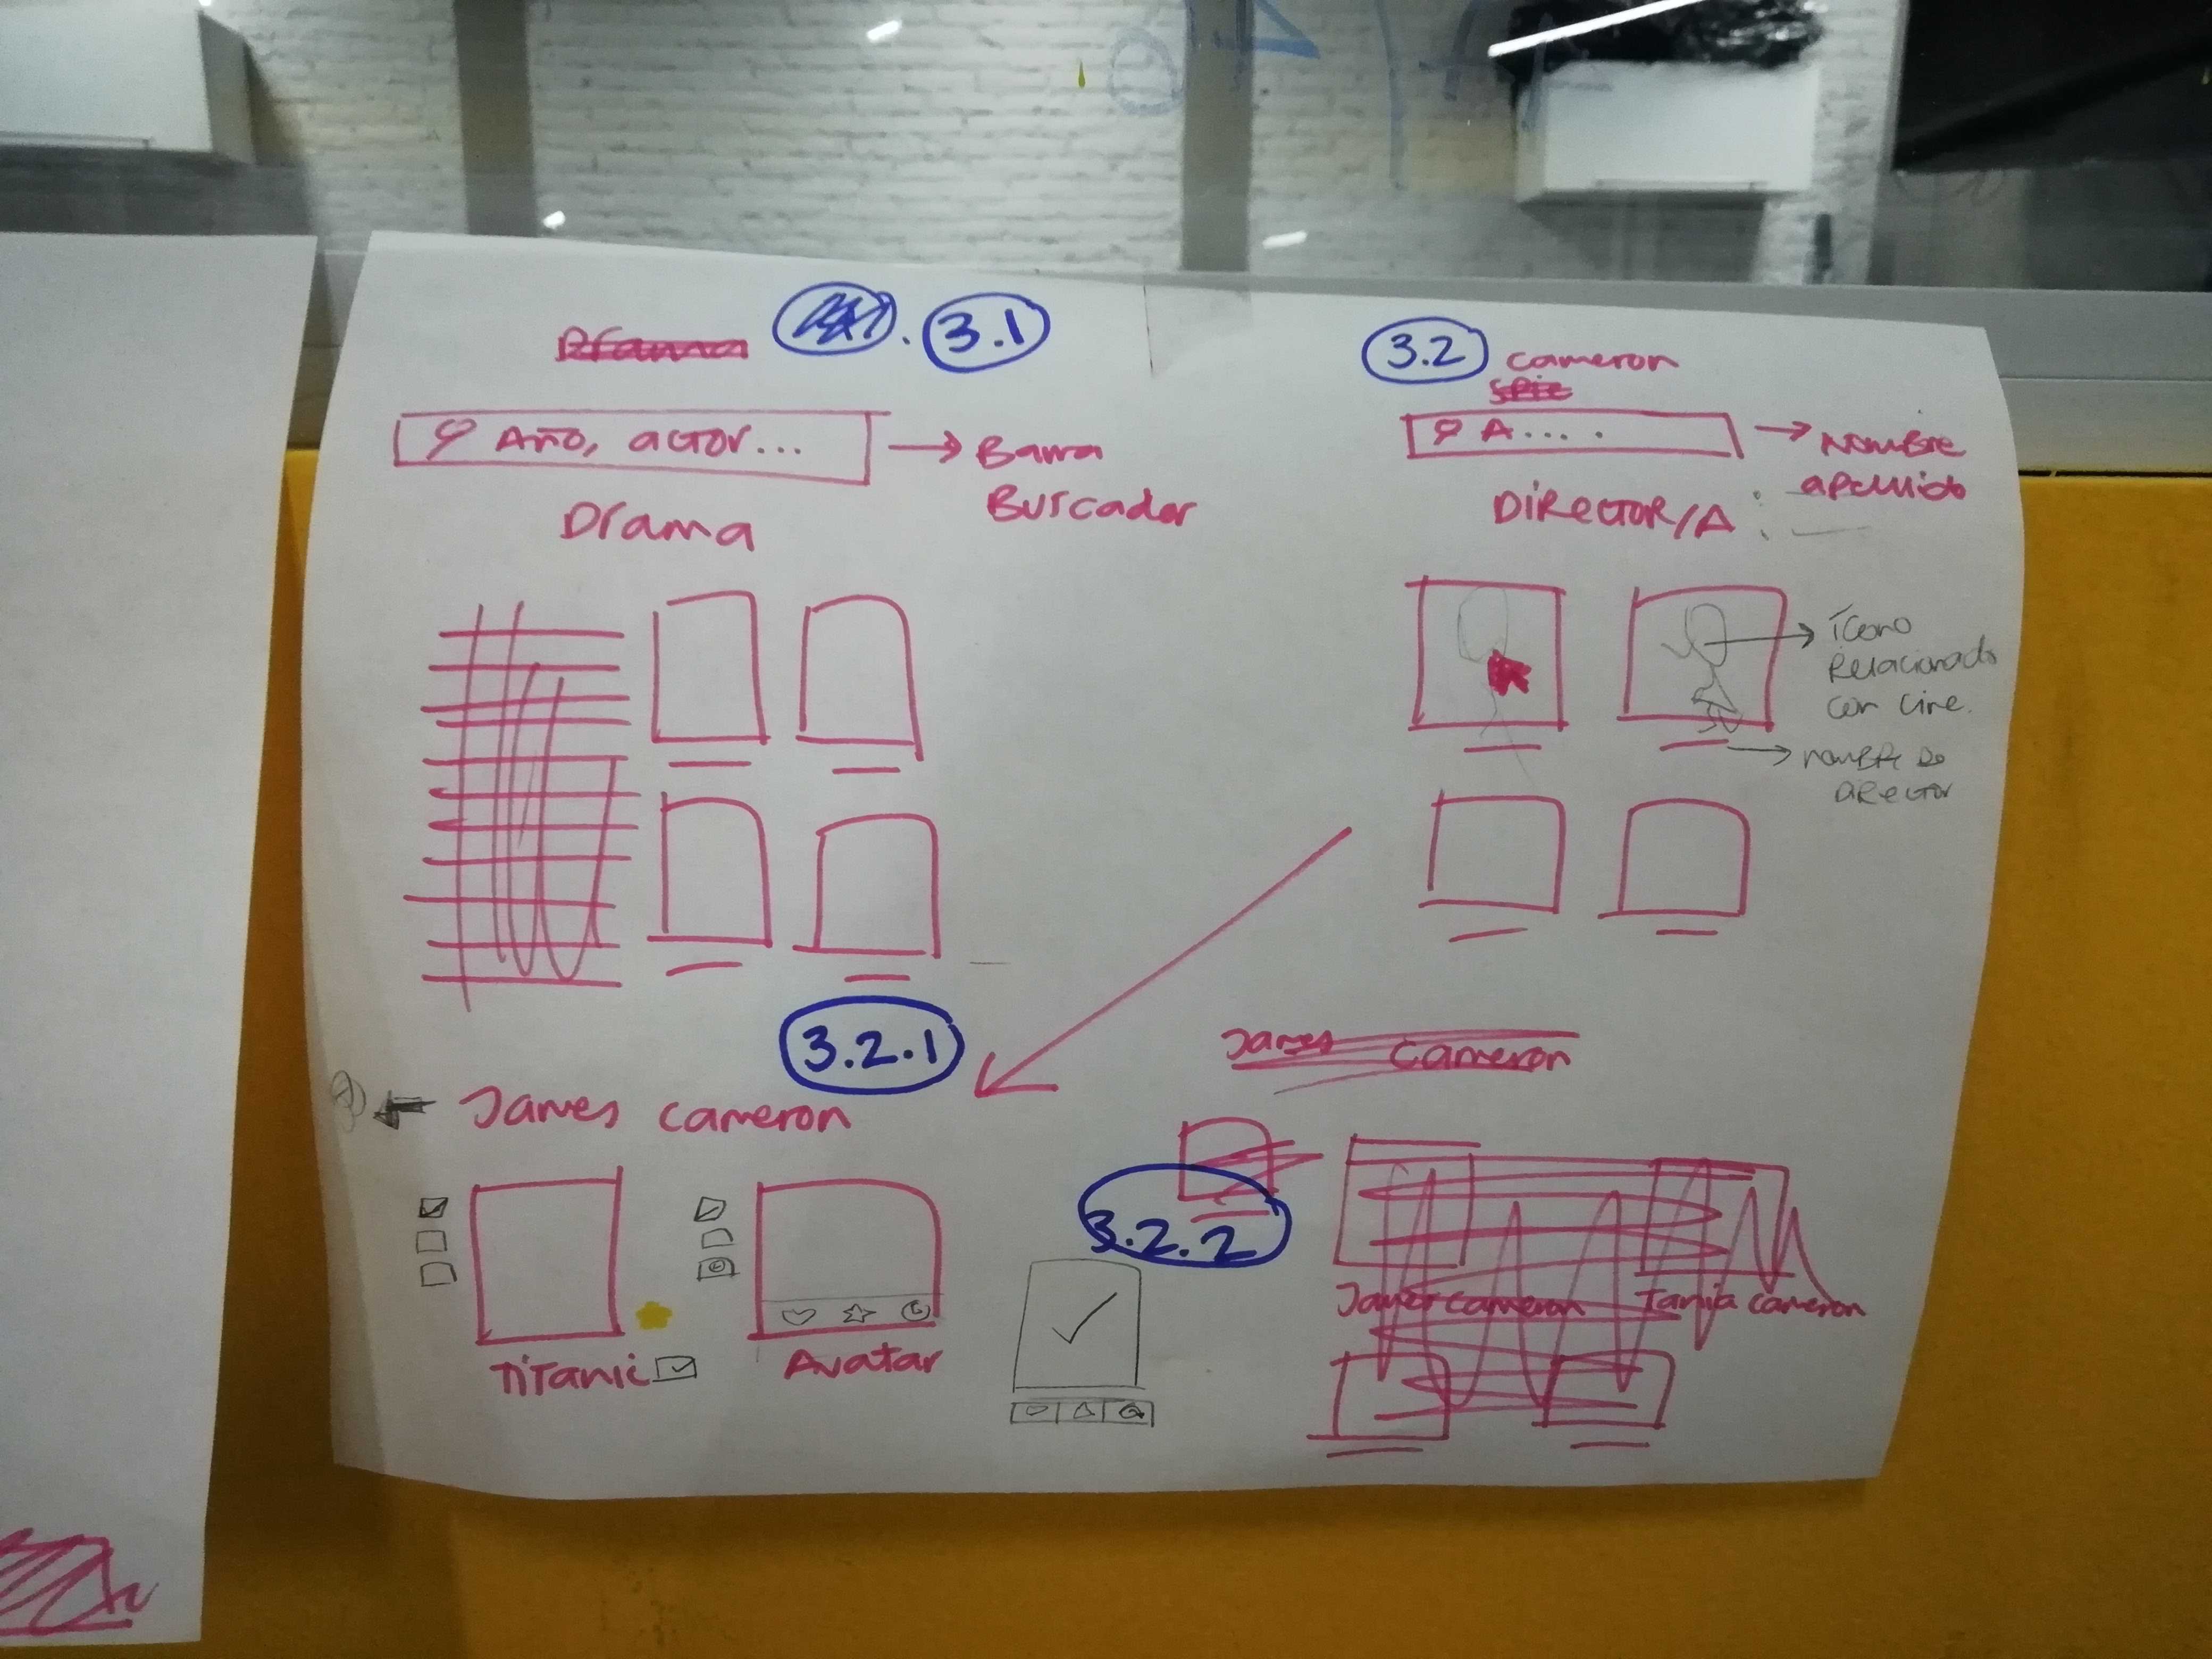 3.1
Año, actor...
Barra
Buscador
Drama
3.2
cameron
A.... .
Nombre
apellido
DIRECTOR/A :
ícono
Relacionado
con cine.
nombre de
DIRECTOR
3.2.1
James cameron
Titanic
Avatar
James cameron
3.2.2
James cameron
Tanja cameron